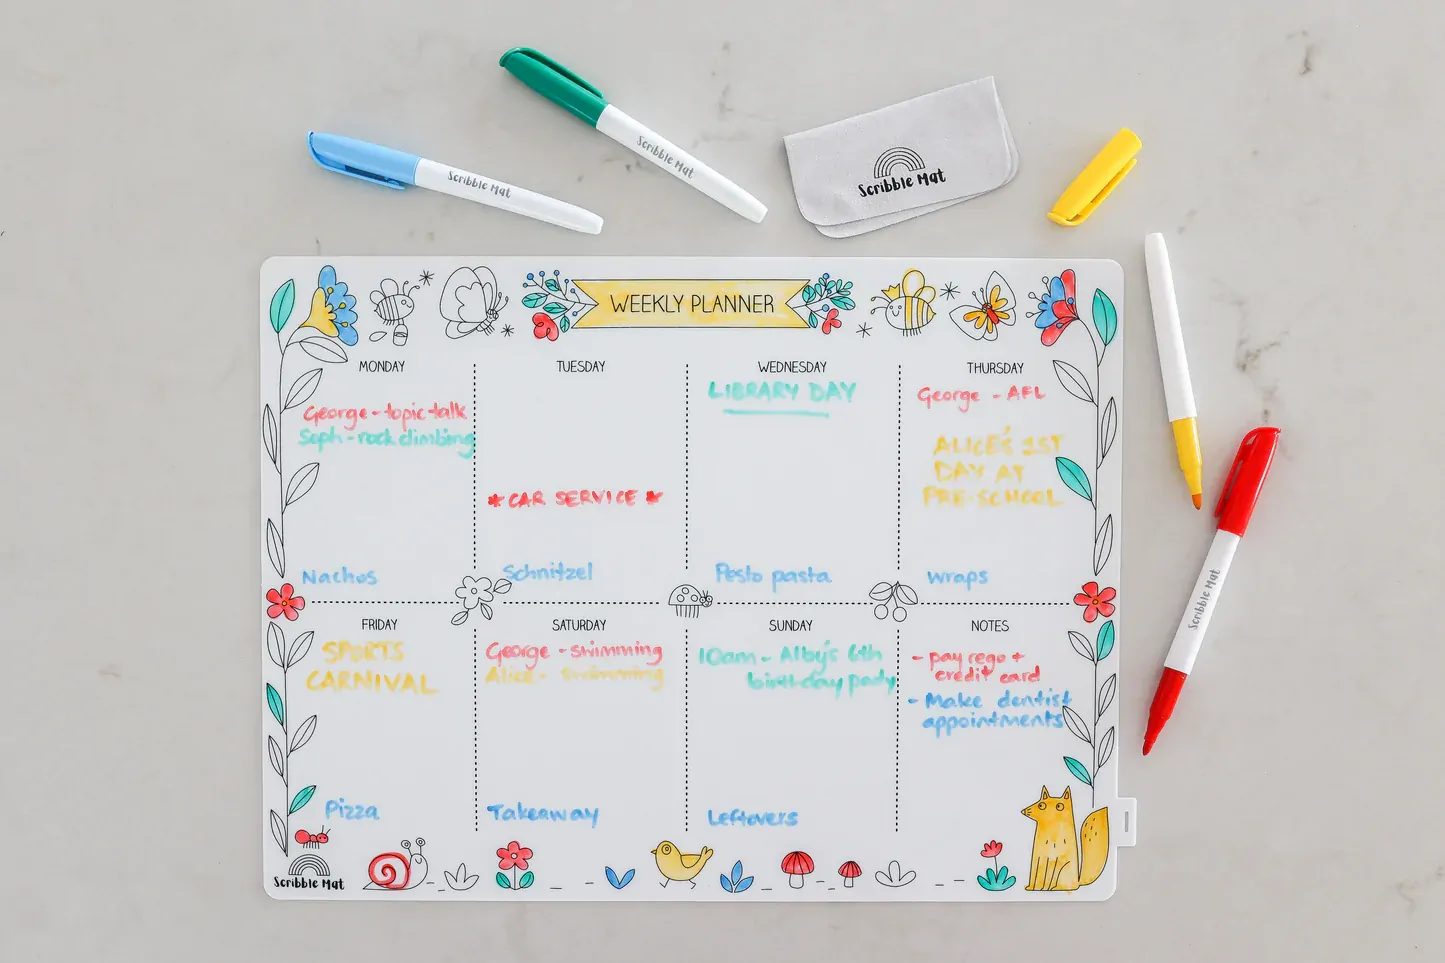 Scribble Mat
Scribble Mat
Scribble Mat
WEEKLY PLANNER
MONDAY
George - topic talk
Soph - rock climbing
Nachos
TUESDAY
* CAR SERVICE *
Schnitzel
WEDNESDAY
LIBRARY DAY
Pesto pasta
THURSDAY
George - AFL
ALICE'S 1ST
DAY AT
PRE-SCHOOL
wraps
FRIDAY
SPORTS
CARNIVAL
Pizza
SATURDAY
George - swimming
Alice - swimming
Takeaway
SUNDAY
10am - Alby's 6th
birthday party
Leftovers
NOTES
- pay rego +
credit card
- Make dentist
appointments
Scribble Mat
Scribble Mat